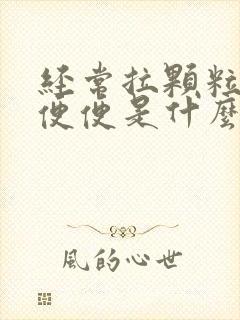 經常拉顆粒
便便是什麼
風的心世